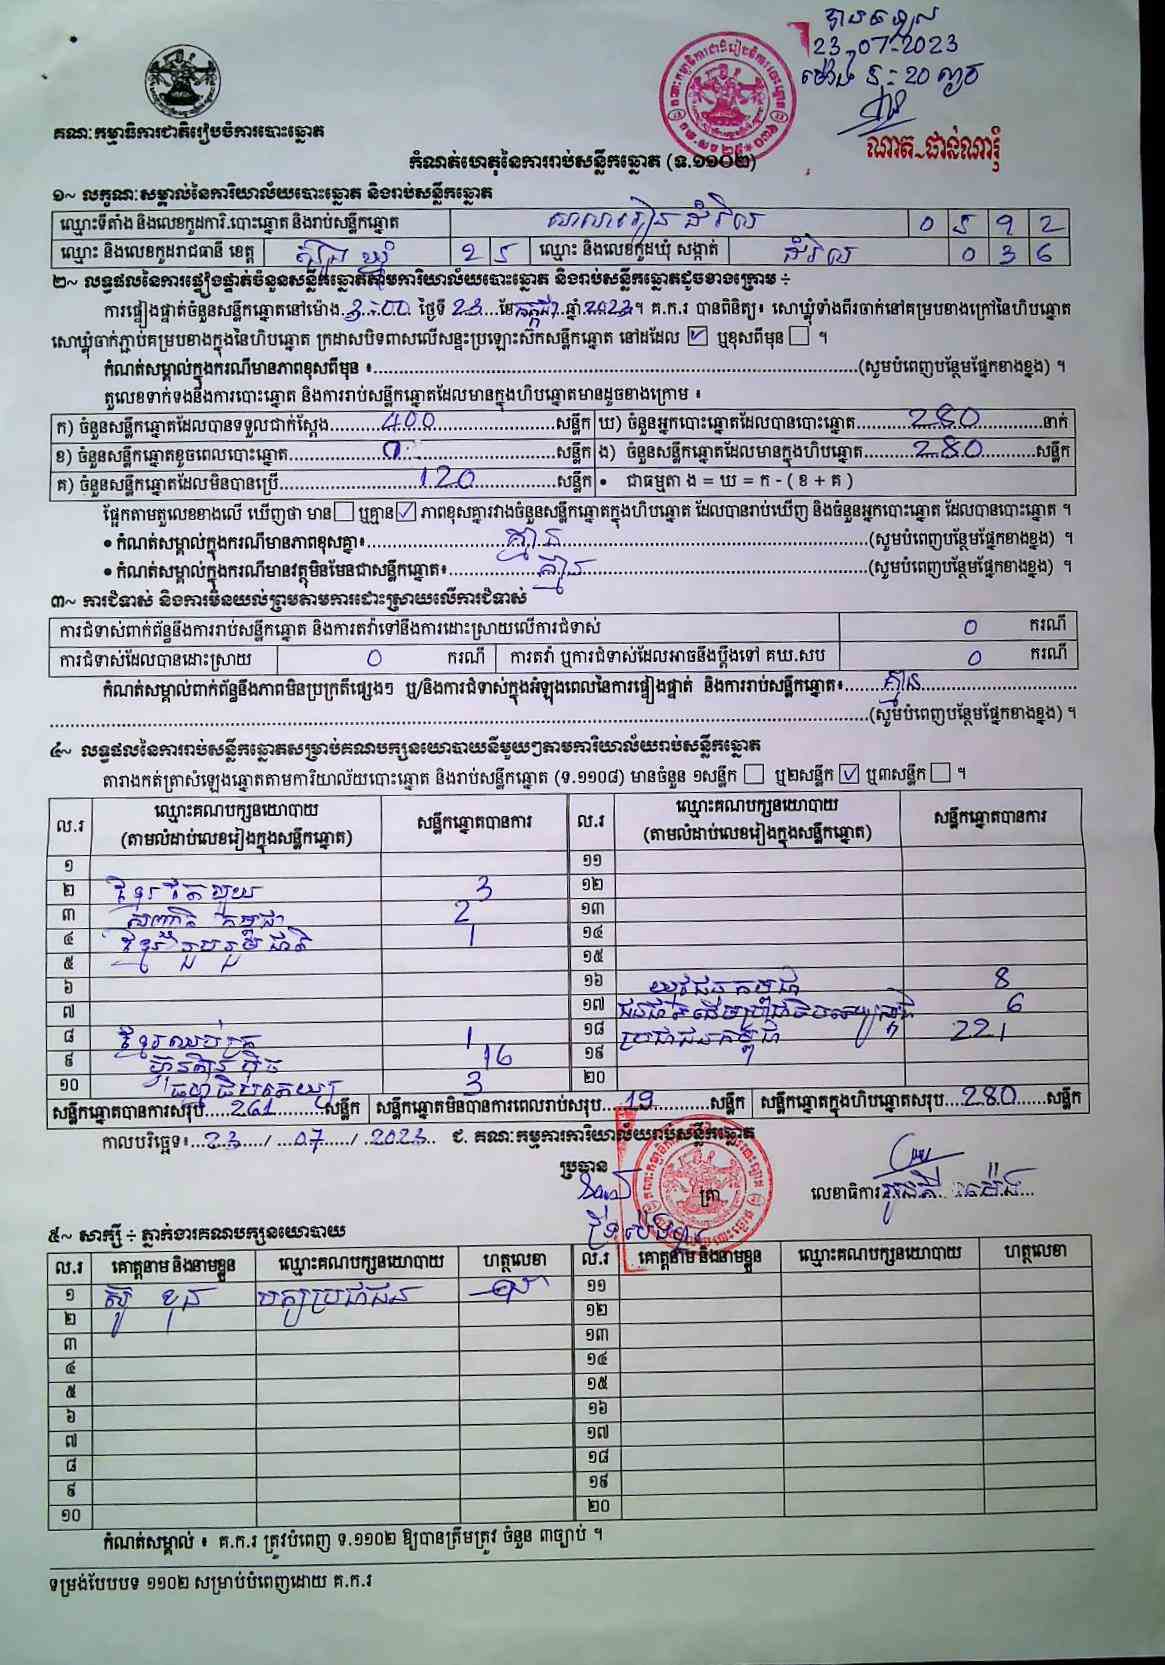 បានទទួល
23-07-2023
គណៈកម្មាធិការជាតិរៀបចំការបោះឆ្នោត
ណាត-ផាន់ណារុំ
កំណត់ហេតុនៃការរាប់សន្លឹកឆ្នោត (ទ.១១០២)
១~ លក្ខណៈសម្គាល់នៃការិយាល័យបោះឆ្នោត និងរាប់សន្លឹកឆ្នោត
ឈ្មោះទីតាំង និងលេខកូដការិ.បោះឆ្នោត និងរាប់សន្លឹកឆ្នោត សាលារៀន ជំរិល 0 5 9 2
ឈ្មោះ និងលេខកូដរាជធានី ខេត្ត 2 5 ឈ្មោះ និងលេខកូដឃុំ សង្កាត់ ជំរិល 0 3 6
២~ លទ្ធផលនៃការផ្ទៀងផ្ទាត់ចំនួនសន្លឹកឆ្នោតតាមការិយាល័យបោះឆ្នោត និងរាប់សន្លឹកឆ្នោតដូចខាងក្រោម ÷
ការផ្ទៀងផ្ទាត់ចំនួនសន្លឹកឆ្នោតនៅម៉ោង 3-00 ថ្ងៃទី 23 ខែ កក្កដា ឆ្នាំ 2023។ គ.ក.រ បានពិនិត្យ៖ សោឃ្លុំទាំងពីរចាក់នៅគម្របខាងក្រៅនៃហិបឆ្នោត
សោឃ្លុំចាក់ភ្ជាប់គម្របខាងក្នុងនៃហិបឆ្នោត ក្រដាសបិទពាសលើសន្ទះប្រឡោះស៊កសន្លឹកឆ្នោត នៅដដែល ☑ ឬខុសពីមុន ☐ ។
កំណត់សម្គាល់ក្នុងករណីមានភាពខុសពីមុន ៖..........(សូមបំពេញបន្ថែមផ្នែកខាងខ្នង) ។
តួលេខទាក់ទងនឹងការបោះឆ្នោត និងការរាប់សន្លឹកឆ្នោតដែលមានក្នុងហិបឆ្នោតមានដូចខាងក្រោម ៖
ក) ចំនួនសន្លឹកឆ្នោតដែលបានទទួលជាក់ស្ដែង 400 សន្លឹក ឃ) ចំនួនអ្នកបោះឆ្នោតដែលបានបោះឆ្នោត 280 នាក់
ខ) ចំនួនសន្លឹកឆ្នោតខូចពេលបោះឆ្នោត 0 សន្លឹក ង) ចំនួនសន្លឹកឆ្នោតដែលមានក្នុងហិបឆ្នោត 280 សន្លឹក
គ) ចំនួនសន្លឹកឆ្នោតដែលមិនបានប្រើ 120 សន្លឹក • ជាធម្មតា ង = ឃ = ក - ( ខ + គ )
ផ្អែកតាមតួលេខខាងលើ ឃើញថា មាន ☐ ឬគ្មាន ☑ ភាពខុសគ្នារវាងចំនួនសន្លឹកឆ្នោតក្នុងហិបឆ្នោត ដែលបានរាប់ឃើញ និងចំនួនអ្នកបោះឆ្នោត ដែលបានបោះឆ្នោត ។
• កំណត់សម្គាល់ក្នុងករណីមានភាពខុសគ្នា៖ គ្មាន (សូមបំពេញបន្ថែមផ្នែកខាងខ្នង) ។
• កំណត់សម្គាល់ក្នុងករណីមានវត្ថុមិនមែនជាសន្លឹកឆ្នោត៖ គ្មាន (សូមបំពេញបន្ថែមផ្នែកខាងខ្នង) ។
៣~ ការជំទាស់ និងការមិនយល់ព្រមតាមការដោះស្រាយលើការជំទាស់
ការជំទាស់ពាក់ព័ន្ធនឹងការរាប់សន្លឹកឆ្នោត និងការតវ៉ាទៅនឹងការដោះស្រាយលើការជំទាស់ 0 ករណី
ការជំទាស់ដែលបានដោះស្រាយ 0 ករណី ការតវ៉ា ឬការជំទាស់ដែលអាចនឹងប្ដឹងទៅ គឃ.សប 0 ករណី
កំណត់សម្គាល់ពាក់ព័ន្ធនឹងភាពមិនប្រក្រតីផ្សេងៗ ឬ/និងការជំទាស់ក្នុងអំឡុងពេលនៃការផ្ទៀងផ្ទាត់ និងការរាប់សន្លឹកឆ្នោត៖ គ្មាន
(សូមបំពេញបន្ថែមផ្នែកខាងខ្នង) ។
៤~ លទ្ធផលនៃការរាប់សន្លឹកឆ្នោតសម្រាប់គណបក្សនយោបាយនីមួយៗតាមការិយាល័យរាប់សន្លឹកឆ្នោត
តារាងកត់ត្រាសំឡេងឆ្នោតតាមការិយាល័យបោះឆ្នោត និងរាប់សន្លឹកឆ្នោត (ទ.១១០៨) មានចំនួន ១សន្លឹក ☐ ឬ២សន្លឹក ☑ ឬ៣សន្លឹក ☐ ។
ល.រ ឈ្មោះគណបក្សនយោបាយ (តាមលំដាប់លេខរៀងក្នុងសន្លឹកឆ្នោត) សន្លឹកឆ្នោតបានការ ល.រ ឈ្មោះគណបក្សនយោបាយ (តាមលំដាប់លេខរៀងក្នុងសន្លឹកឆ្នោត) សន្លឹកឆ្នោតបានការ
១ ១១
២ ខ្មែរតែមួយ 3 ១២
៣ សញ្ជាតិកម្ពុជា 2 ១៣
៤ ខ្មែររួបរួមជាតិ 1 ១៤
៥ ១៥
៦ ១៦ យុវជនកម្ពុជា 8
៧ ១៧ 6
៨ ខ្មែរឈប់ក្រ 1 ១៨ ប្រជាជនកម្ពុជា 221
៩ ហ្វ៊ុនស៊ិនប៉ិច 16 ១៩
១០ 3 ២០
សន្លឹកឆ្នោតបានការសរុប 261 សន្លឹក សន្លឹកឆ្នោតមិនបានការពេលរាប់សរុប 19 សន្លឹក សន្លឹកឆ្នោតក្នុងហិបឆ្នោតសរុប 280 សន្លឹក
កាលបរិច្ឆេទ៖ 23 / 07 / 2023 ជ. គណៈកម្មការការិយាល័យរាប់សន្លឹកឆ្នោត
ប្រធាន ត្រា លេខាធិការ
៥~ សាក្សី ÷ ភ្នាក់ងារគណបក្សនយោបាយ
ល.រ គោត្តនាម និងនាមខ្លួន ឈ្មោះគណបក្សនយោបាយ ហត្ថលេខា ល.រ គោត្តនាម និងនាមខ្លួន ឈ្មោះគណបក្សនយោបាយ ហត្ថលេខា
១ ១១
២ ១២
៣ ១៣
៤ ១៤
៥ ១៥
៦ ១៦
៧ ១៧
៨ ១៨
៩ ១៩
១០ ២០
កំណត់សម្គាល់ ៖ គ.ក.រ ត្រូវបំពេញ ទ.១១០២ ឱ្យបានត្រឹមត្រូវ ចំនួន ៣ច្បាប់ ។
ទម្រង់បែបបទ ១១០២ សម្រាប់បំពេញដោយ គ.ក.រ